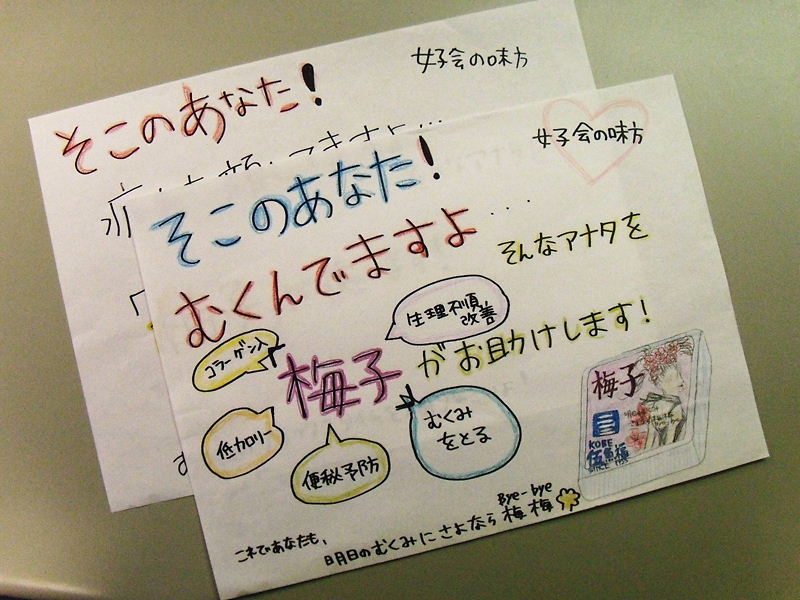 女子会の味方
そこのあなた!
女子会の味方
そこのあなた!
むくんでますよ...
そんなアナタを
生理不順
改善
コラーゲン入
梅子がお助けします!
低カロリー
便秘予防
むくみ
をとる
梅子
KOBE
これであなたも、
明日のむくみにさよなら梅梅
Bye-bye